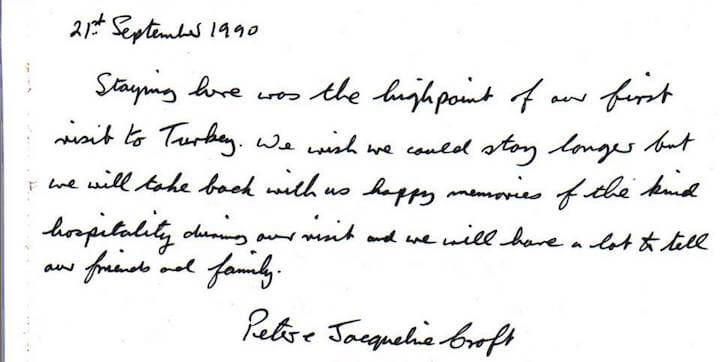 21st September 1990
Staying here was the highpoint of our first
visit to Turkey. We wish we could stay longer but
we will take back with us happy memories of the kind
hospitality during our visit and we will have a lot to tell
our friends and family.
Peter & Jacqueline Croft